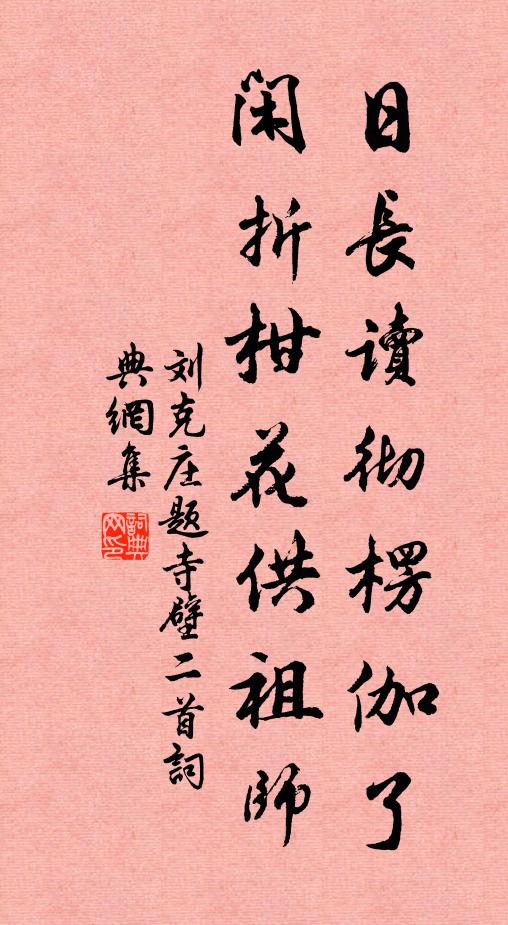 日長讀彻楞伽了
閑折柑花供祖師
刘克庄题寺壁二首詞
典網集
詞典
网印